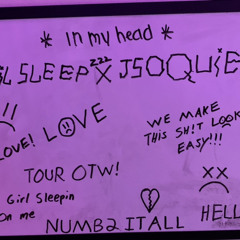 * In my head *
SL SLEEP zzz X JSOQUIE
LOVE! LOVE
WE MAKE
THIS SH!T LOOK
EASY!!!
TOUR OTW!
Girl Sleepin
on me
NUMB2 IT ALL
HELL